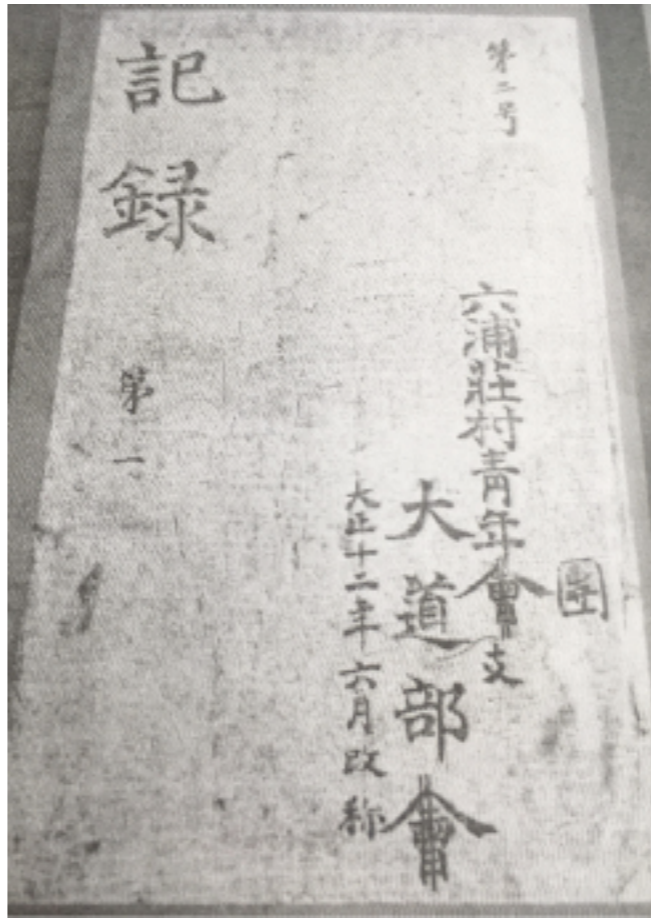 第二号
團
六浦莊村青年會
支
大道部會
大正十二年六月改称
記録 第一